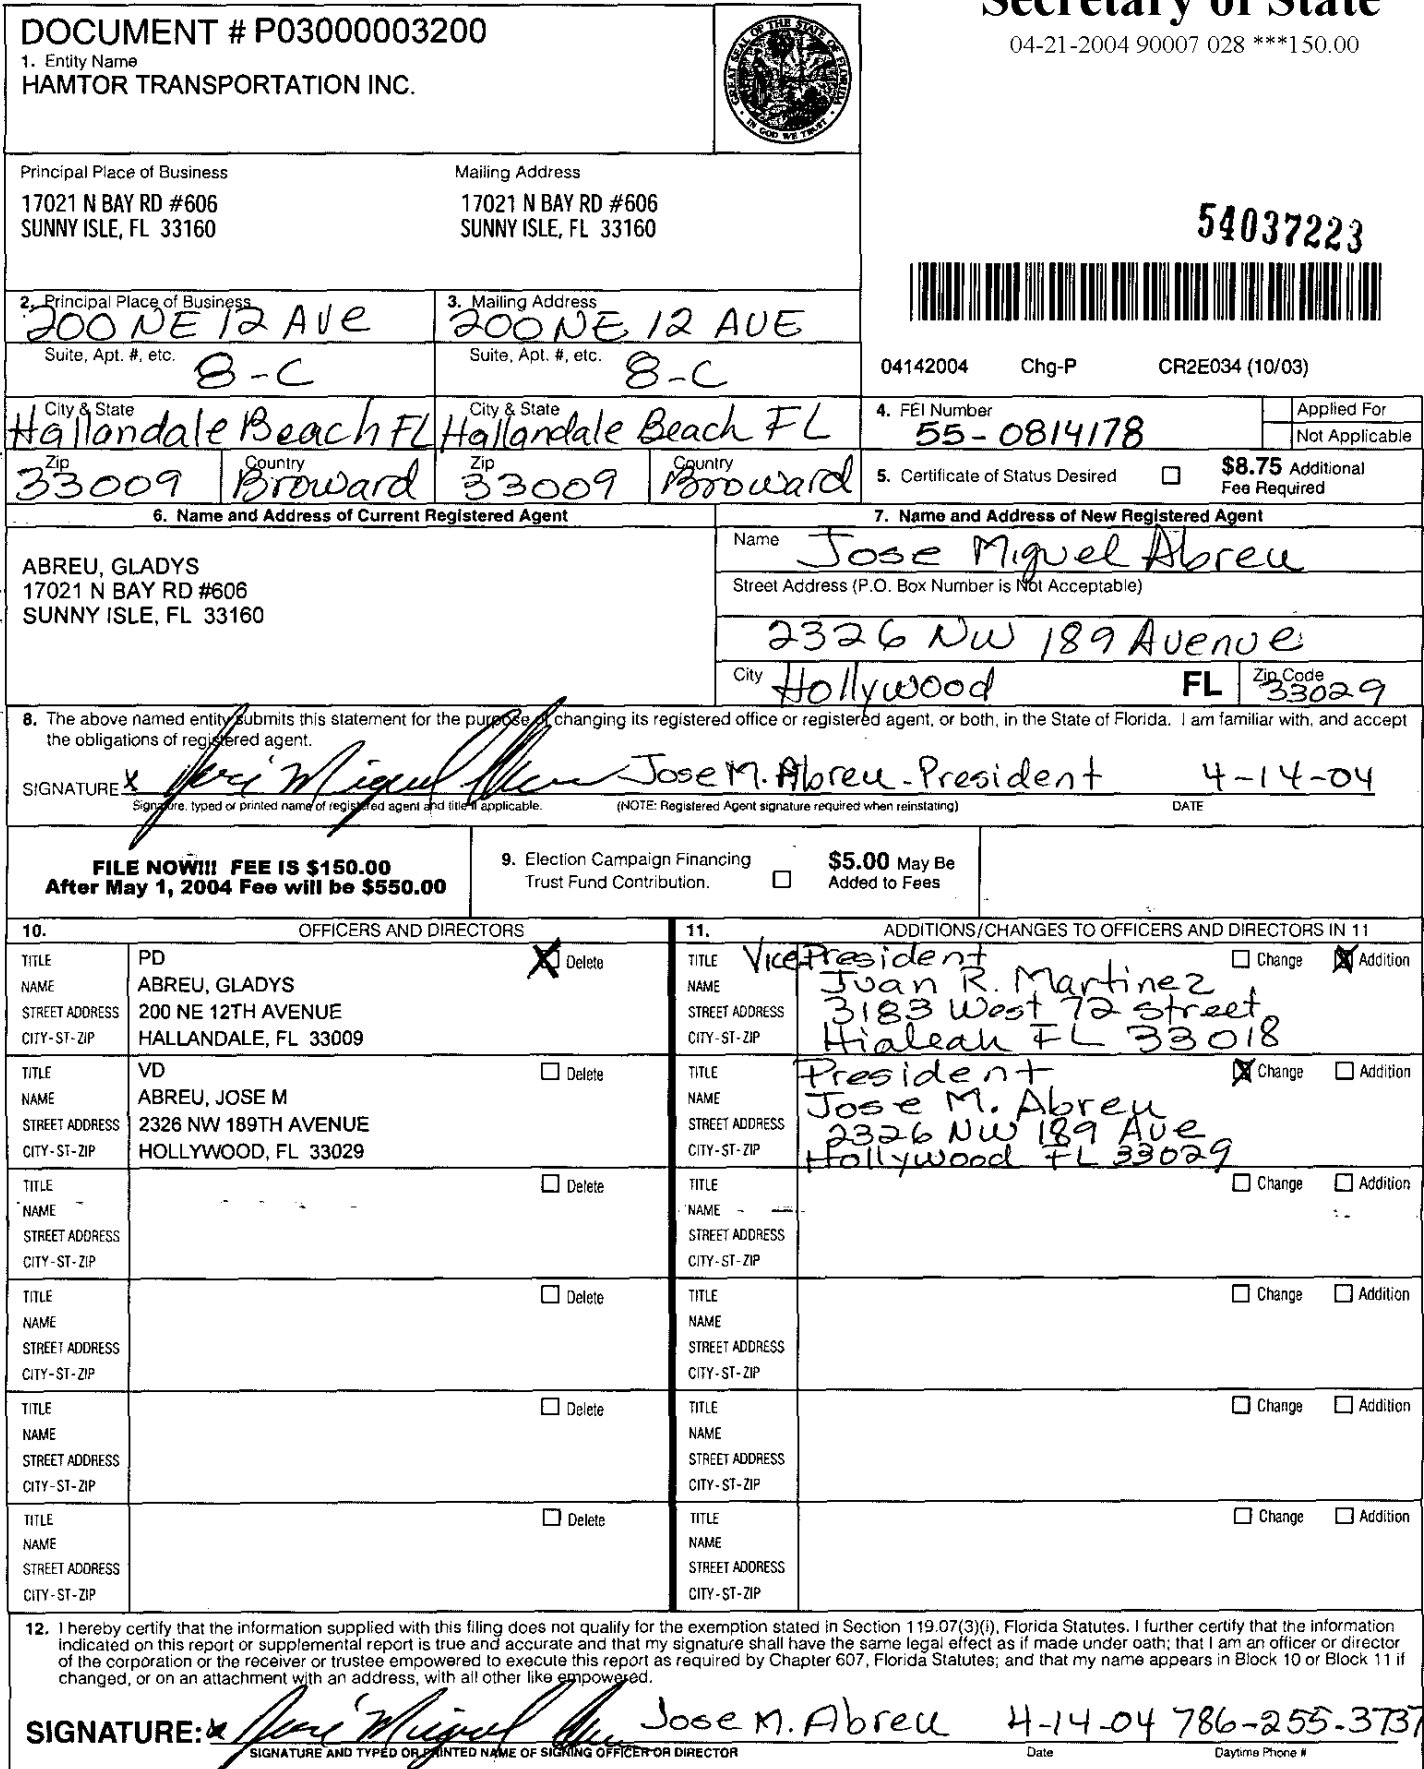 Secretary of State
04-21-2004 90007 028 ***150.00
DOCUMENT # P03000003200
1. Entity Name
HAMTOR TRANSPORTATION INC.
GREAT SEAL OF THE STATE OF FLORIDA
IN GOD WE TRUST
Principal Place of Business
17021 N BAY RD #606
SUNNY ISLE, FL 33160
Mailing Address
17021 N BAY RD #606
SUNNY ISLE, FL 33160
54037223
2. Principal Place of Business
200 NE 12 Ave
3. Mailing Address
200 NE 12 AUE
Suite, Apt. #, etc.
8-C
Suite, Apt. #, etc.
8-C
04142004 Chg-P CR2E034 (10/03)
City & State
Hallandale Beach FL
City & State
Hallandale Beach FL
4. FEI Number
55-0814178
Applied For
Not Applicable
Zip
33009
Country
Broward
Zip
33009
Country
Broward
5. Certificate of Status Desired
$8.75 Additional
Fee Required
6. Name and Address of Current Registered Agent
ABREU, GLADYS
17021 N BAY RD #606
SUNNY ISLE, FL 33160
7. Name and Address of New Registered Agent
Name Jose Miguel Abreu
Street Address (P.O. Box Number is Not Acceptable)
2326 NW 189 Avenue
City Hollywood FL Zip Code 33029
8. The above named entity submits this statement for the purpose of changing its registered office or registered agent, or both, in the State of Florida. I am familiar with, and accept
the obligations of registered agent.
SIGNATURE x Jose Miguel Abreu Jose M. Abreu - President 4-14-04
Signature, typed or printed name of registered agent and title if applicable. (NOTE: Registered Agent signature required when reinstating) DATE
FILE NOW!!! FEE IS $150.00
After May 1, 2004 Fee will be $550.00
9. Election Campaign Financing
Trust Fund Contribution.
$5.00 May Be
Added to Fees
10. OFFICERS AND DIRECTORS
TITLE PD X Delete
NAME ABREU, GLADYS
STREET ADDRESS 200 NE 12TH AVENUE
CITY-ST-ZIP HALLANDALE, FL 33009
TITLE VD Delete
NAME ABREU, JOSE M
STREET ADDRESS 2326 NW 189TH AVENUE
CITY-ST-ZIP HOLLYWOOD, FL 33029
TITLE Delete
NAME
STREET ADDRESS
CITY-ST-ZIP
TITLE Delete
NAME
STREET ADDRESS
CITY-ST-ZIP
TITLE Delete
NAME
STREET ADDRESS
CITY-ST-ZIP
TITLE Delete
NAME
STREET ADDRESS
CITY-ST-ZIP
11. ADDITIONS/CHANGES TO OFFICERS AND DIRECTORS IN 11
TITLE Vice President Change X Addition
NAME Juan R. Martinez
STREET ADDRESS 3183 West 72 Street
CITY-ST-ZIP Hialeah FL 33018
TITLE President X Change Addition
NAME Jose M. Abreu
STREET ADDRESS 2326 NW 189 Ave
CITY-ST-ZIP Hollywood FL 33029
TITLE Change Addition
NAME
STREET ADDRESS
CITY-ST-ZIP
TITLE Change Addition
NAME
STREET ADDRESS
CITY-ST-ZIP
TITLE Change Addition
NAME
STREET ADDRESS
CITY-ST-ZIP
TITLE Change Addition
NAME
STREET ADDRESS
CITY-ST-ZIP
12. I hereby certify that the information supplied with this filing does not qualify for the exemption stated in Section 119.07(3)(i), Florida Statutes. I further certify that the information
indicated on this report or supplemental report is true and accurate and that my signature shall have the same legal effect as if made under oath; that I am an officer or director
of the corporation or the receiver or trustee empowered to execute this report as required by Chapter 607, Florida Statutes; and that my name appears in Block 10 or Block 11 if
changed, or on an attachment with an address, with all other like empowered.
SIGNATURE: x Jose Miguel Abreu Jose M. Abreu 4-14-04 786-255-3737
SIGNATURE AND TYPED OR PRINTED NAME OF SIGNING OFFICER OR DIRECTOR Date Daytime Phone #